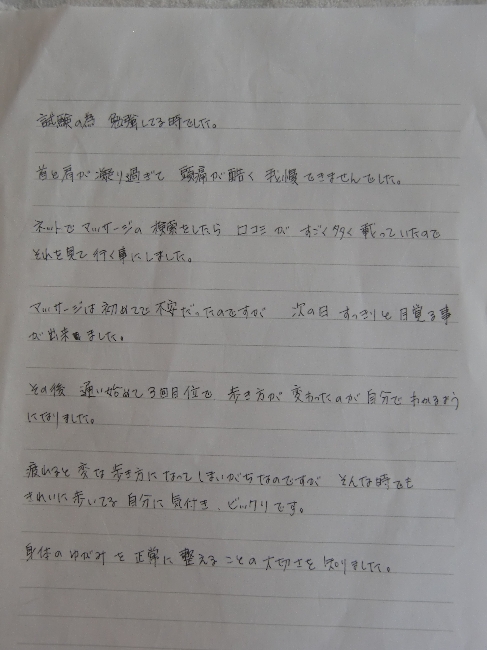 試験の為 勉強してる時でした。
首と肩が凝り過ぎて 頭痛が酷く 我慢できませんでした。
ネットで マッサージの 検索をしたら 口コミが すごく多く 載っていたので
それを見て 行く事にしました。
マッサージは 初めてで 不安だったのですが 次の日 すっきりと 目覚る事
が出来ました。
その後 通い始めて 3回目位で 歩き方が 変わったのが 自分で わかるよう
になりました。
疲れると 変な 歩き方に なって しまいがちなのですが そんな時でも
きれいに 歩いてる 自分に 気付き、ビックリです。
身体の ゆがみを 正常に 整える ことの 大切さを 知りました。